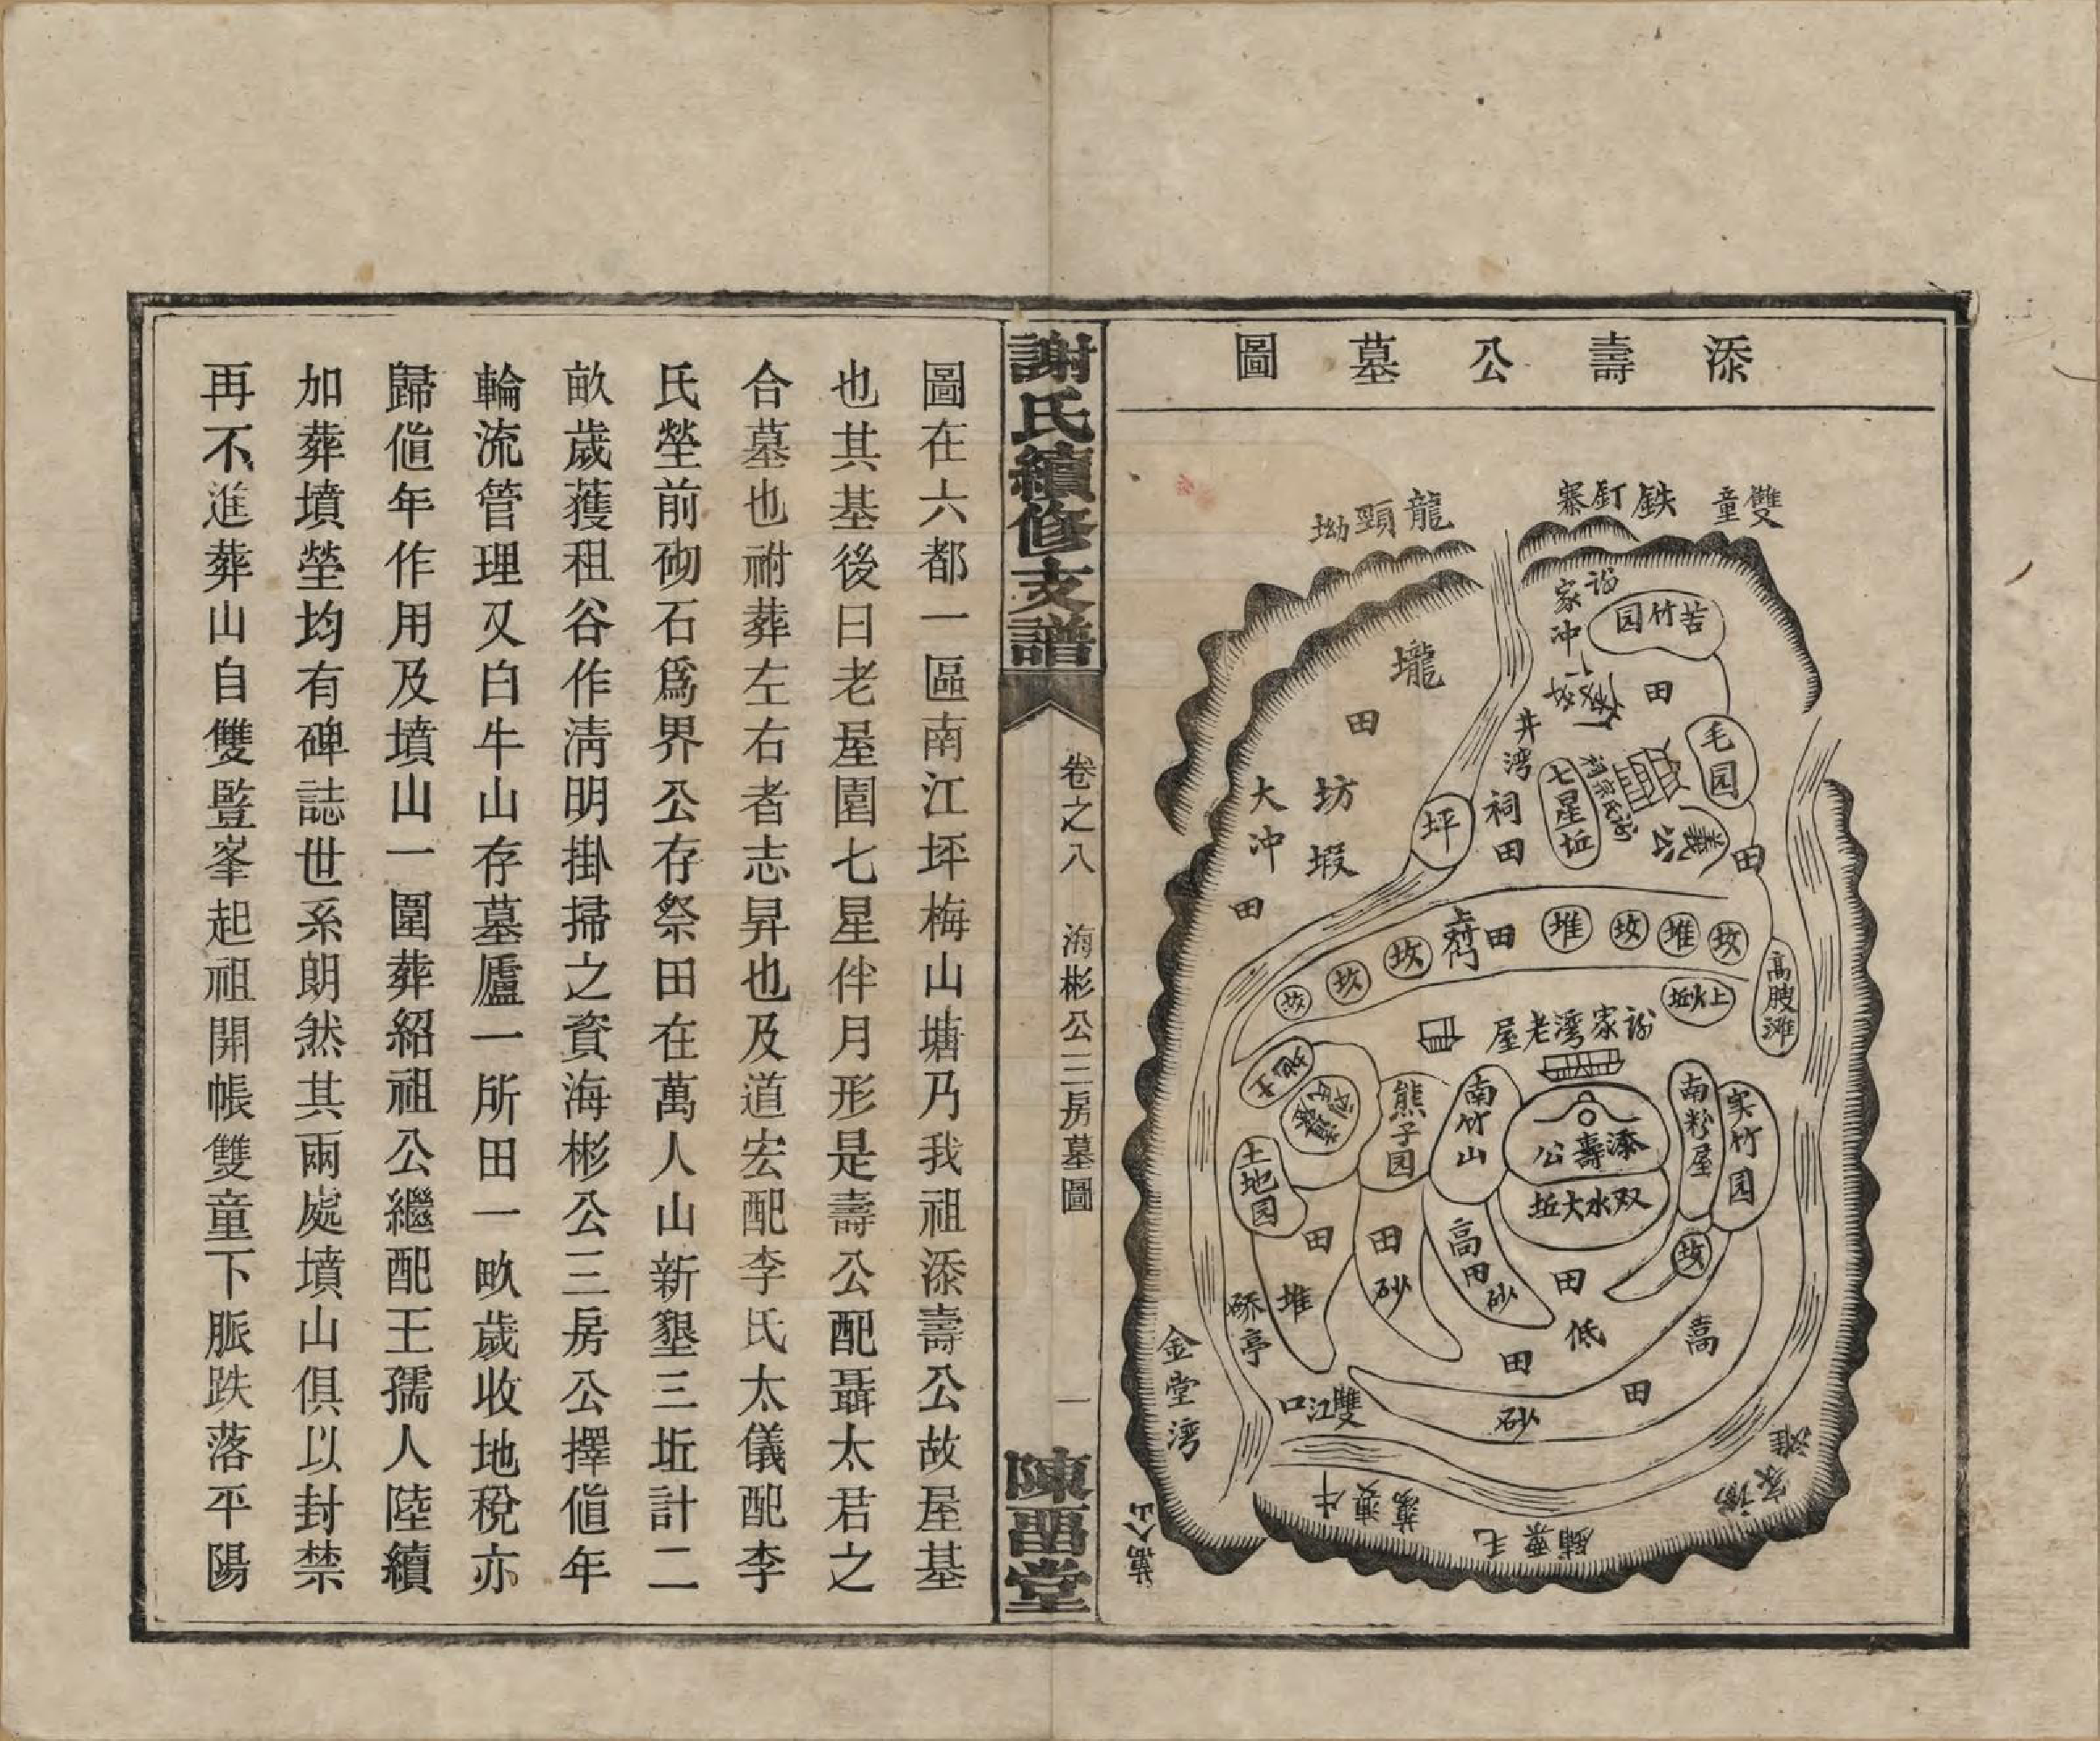 添壽公墓圖
雙童
鉄釘寨
龍頸坳
苦竹园
田
毛园
井湾
祠田
七星坵
義公
田
坪
壠
田
坊
塅
大冲
田
田
堆
坟
堆
坟
坟
坟
坟
高膄滩
家湾老屋
添壽公
双水大坵
南竹山
熊子园
南粉屋
实竹园
土地园
坟
田
堆
田
砂
高田砂
田
低
田
高
田
砂
亭
雙江口
金堂湾
萬人山
謝氏續修支譜
卷之八
海彬公三房墓圖
一
陳畱堂
圖在六都一區南江坪梅山塘乃我祖添壽公故屋基
也其基後曰老屋園七星伴月形是壽公配聶太君之
合墓也祔葬左右者志昇也及道宏配李氏太儀配李
氏塋前砌石爲界公存祭田在萬人山新墾三坵計二
畝歲獲租谷作淸明掛掃之資海彬公三房公擇值年
輪流管理又白牛山存墓廬一所田一畝歲收地稅亦
歸值年作用及墳山一圍葬紹祖公繼配王孺人陸續
加葬墳塋均有碑誌世系朗然其兩處墳山俱以封禁
再不進葬山自雙豎峯起祖開帳雙童下脈跌落平陽